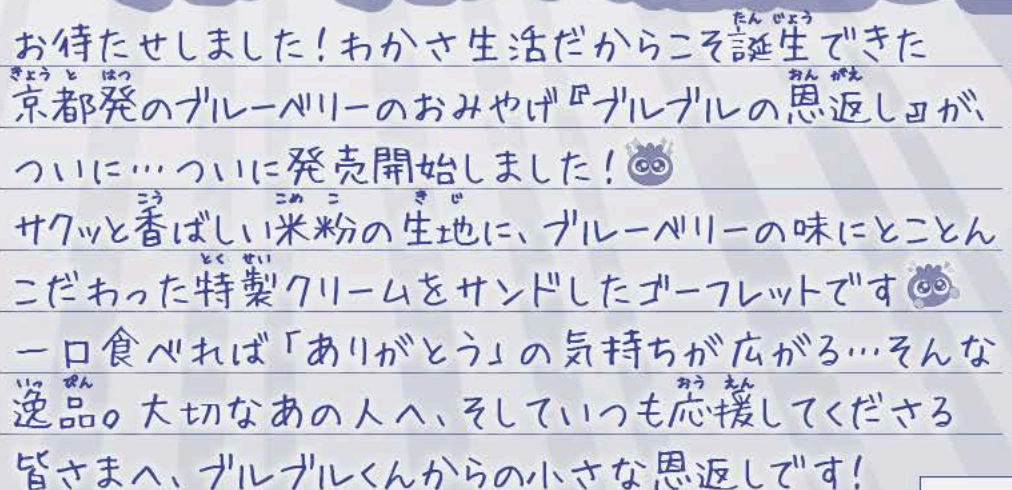 お待たせしました！わかさ生活だからこそ誕生できた
京都発のブルーベリーのおみやげ『ブルブルの恩返し』が、
ついに…ついに発売開始しました！
サクッと香ばしい米粉の生地に、ブルーベリーの味にとことん
こだわった特製クリームをサンドしたゴーフレットです
一口食べれば「ありがとう」の気持ちが広がる…そんな
逸品。大切なあの人へ、そしていつも応援してくださる
皆さまへ、ブルブルくんからの小さな恩返しです！